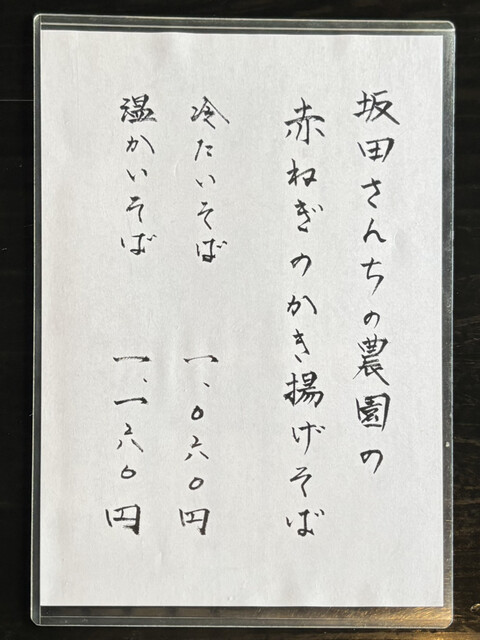 坂田さんちの農園の
赤ねぎのかき揚げそば
冷たいそば 一、〇六〇円
温かいそば 一、一六〇円